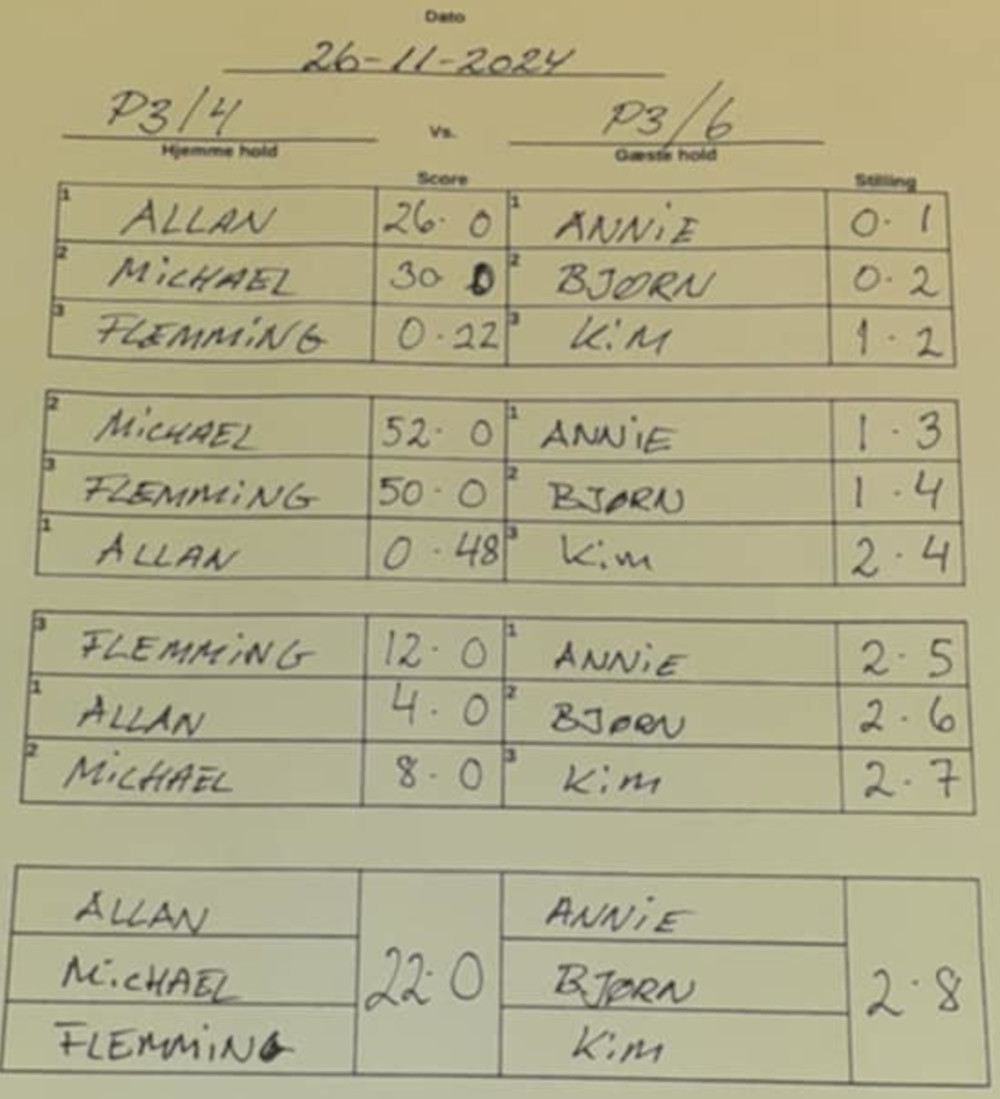 Dato
26-11-2024
P3/4 Vs. P3/6
Hjemme hold Gæste hold
Score Stilling
1 ALLAN 26· 0 1 ANNiE 0· 1
2 MiCHAEL 30 0 2 BJØRN 0· 2
3 FLEMMiNG 0·22 3 KiM 1·2
2 MiCHAEL 52· 0 1 ANNiE 1·3
3 FLEMMiNG 50·0 2 BJØRN 1·4
1 ALLAN 0·48 3 Kim 2·4
3 FLEMMiNG 12·0 1 ANNiE 2·5
1 ALLAN 4·0 2 BJØRN 2·6
2 MiCHAEL 8·0 3 Kim 2·7
ALLAN ANNiE
MiCHAEL 22·0 BJØRN 2·8
FLEMMiNG Kim